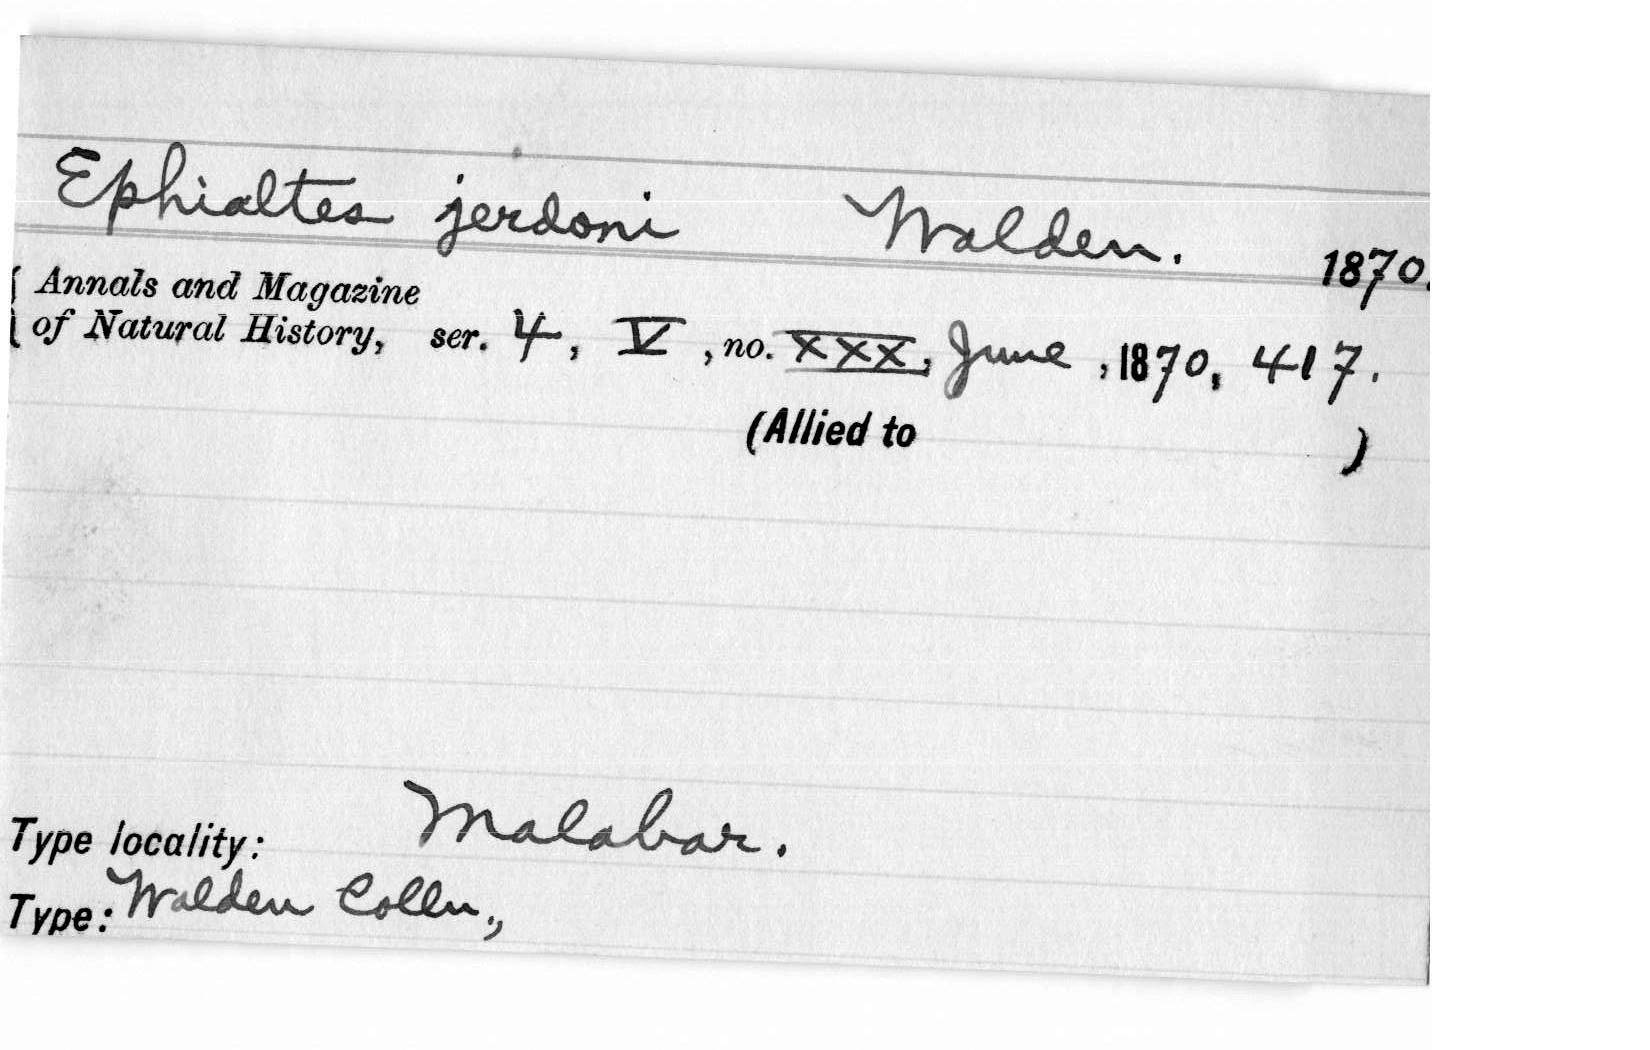 Ephialtes jerdoni Walden. 1870.
Annals and Magazine
of Natural History, ser. 4, V, no. XXX, June, 1870, 417.
(Allied to )
Type locality: Malabar.
Type: Walden Colln.,